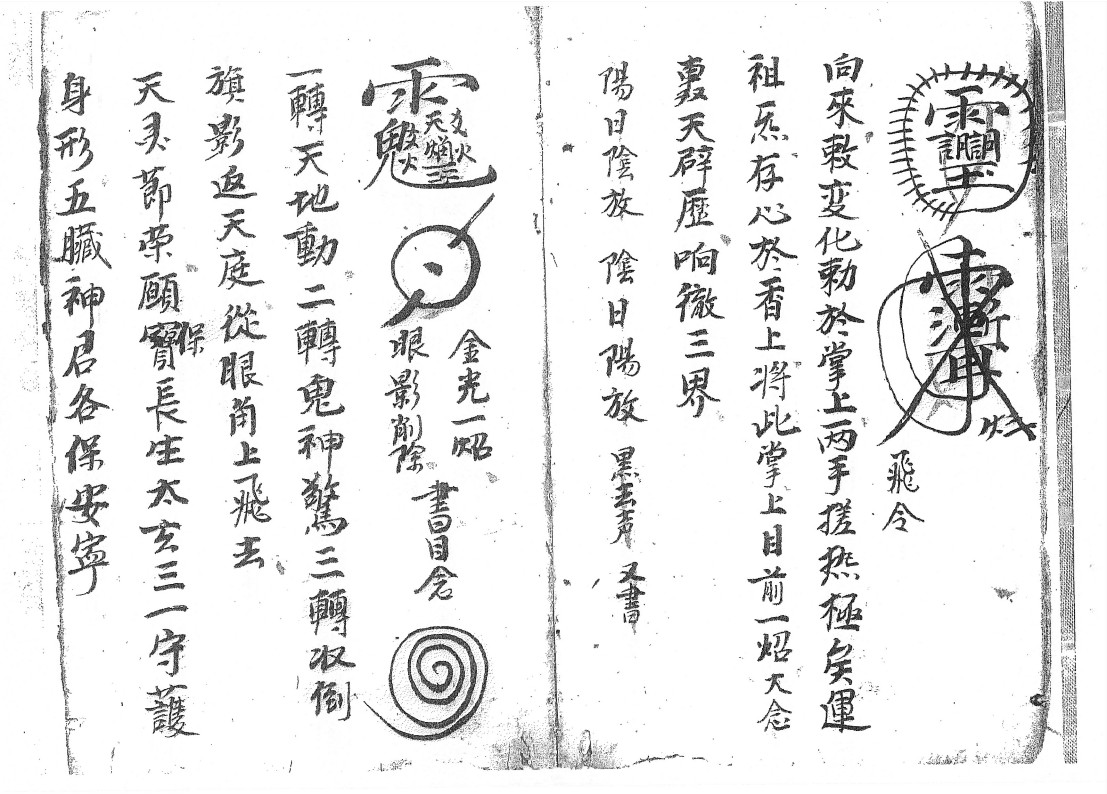 飛令
向來敕变化勅於掌上両手搓热極矣運
祖炁存心於香上将此掌上目前一炤大念
轰天辟歷响徹三界
陽日陰放 陰日陽放 黑去声 又書
金光一炤
眼影削除
書目念
一轉天地動二轉鬼神驚三轉収倒
旗影返天庭從眼角上飛去
天灵節荣願寶保長生太玄三一守護
身形五臟神君各保安寧